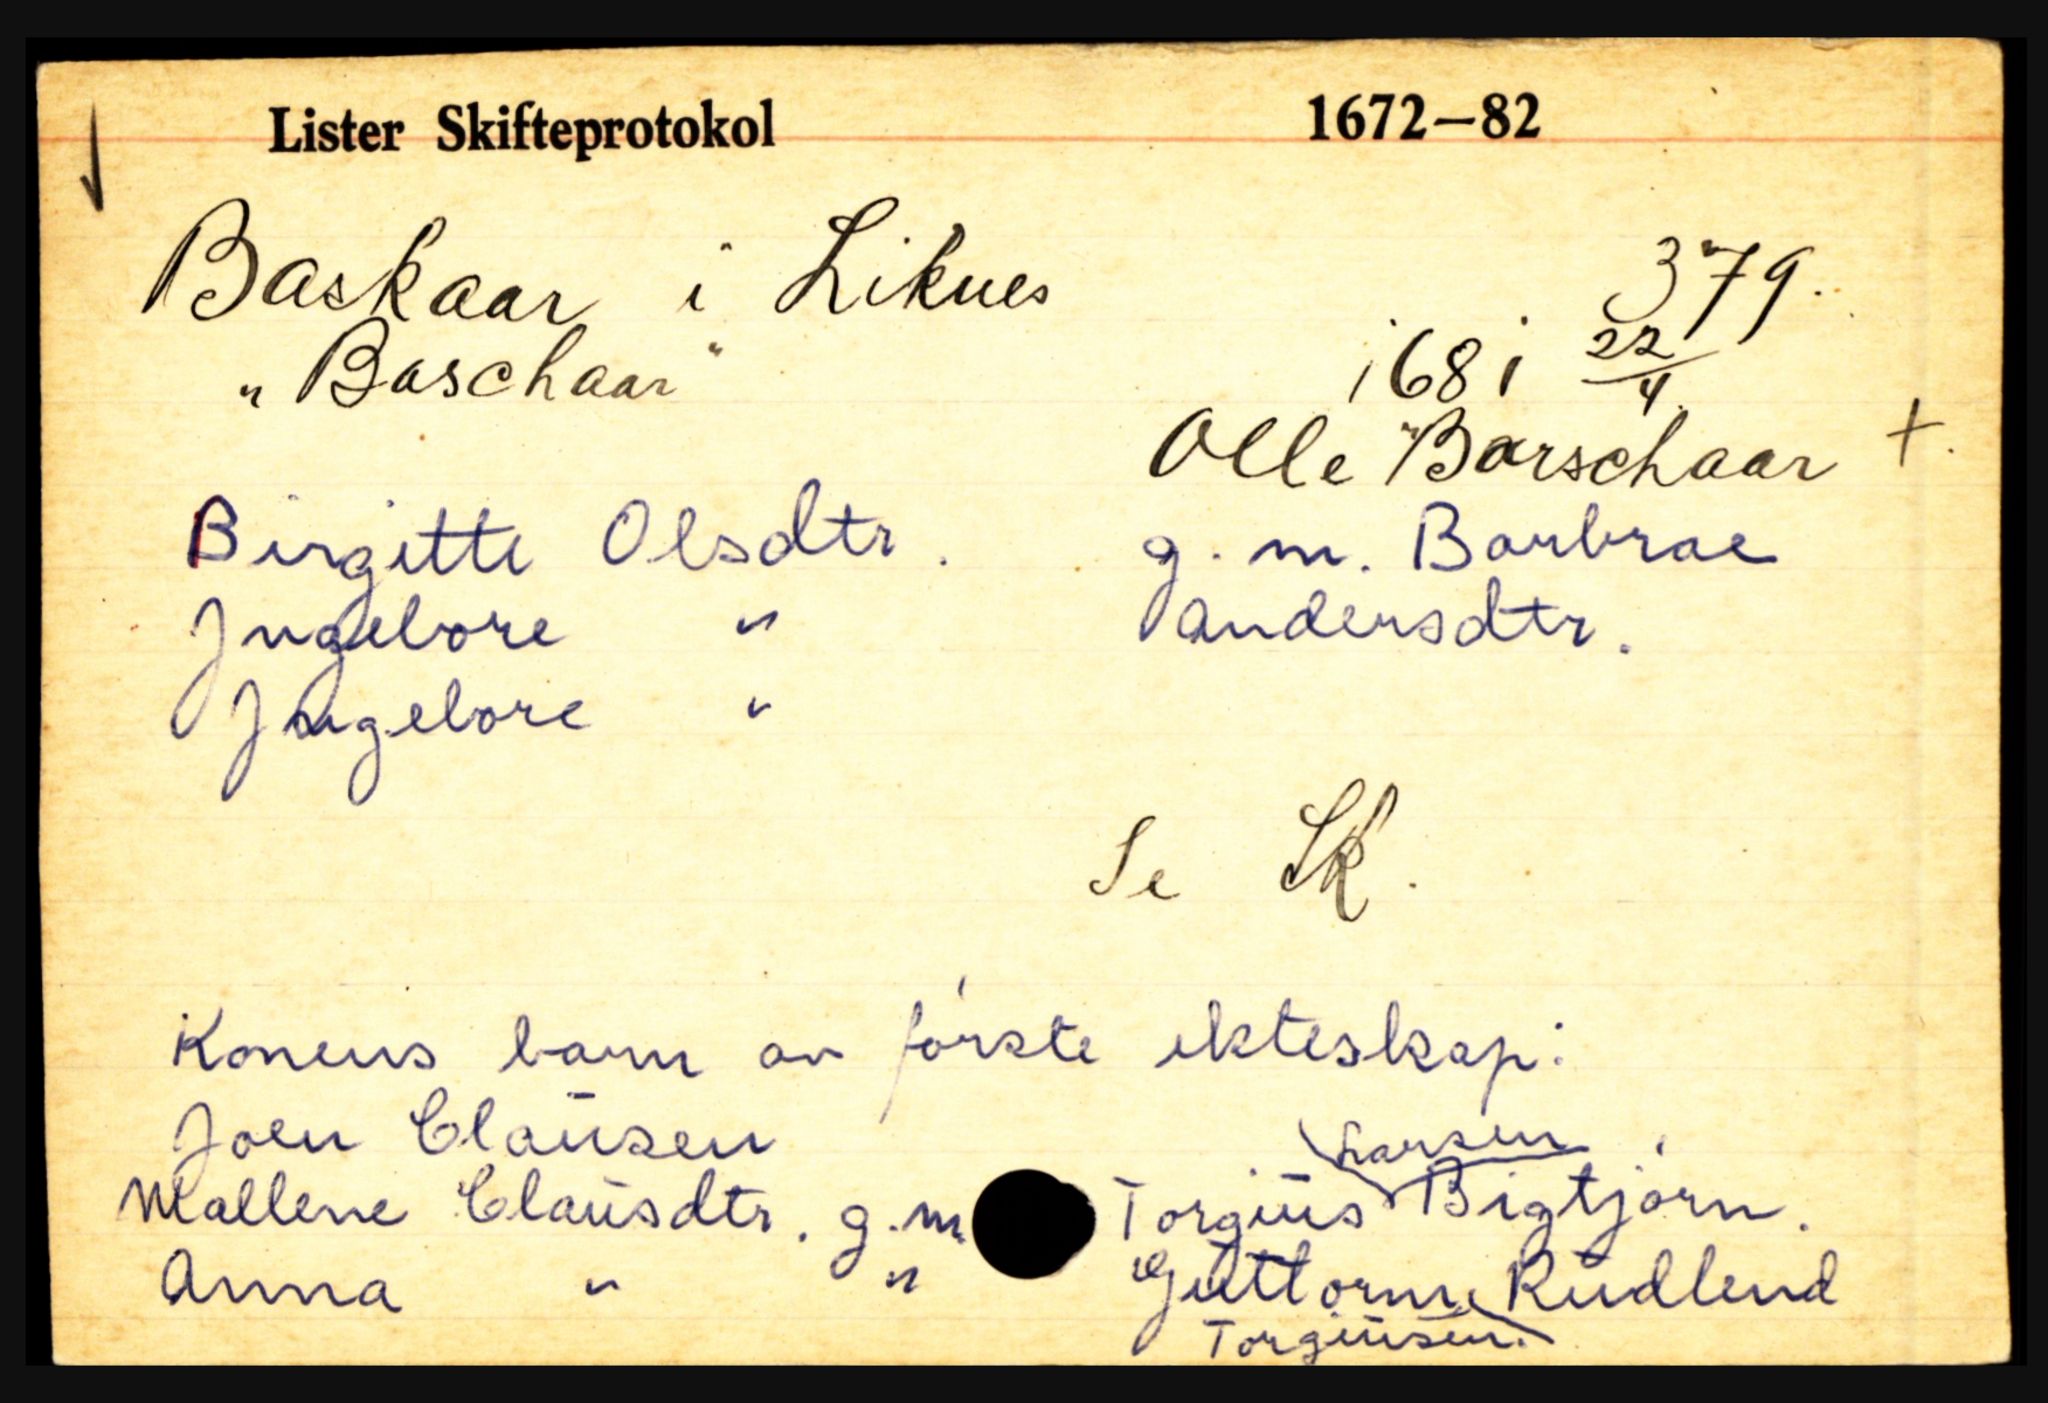 Lister Skifteprotokol 1672–82
Baskaar i Liknes
379.
"Baschaar"
1681 22/4.
Olle "Barschaar +.
Birgitte Olsdtr. g. m. Barbrae
Ingebore " Andersdtr.
Ingebore "
Se Sk.
Konens barn av förste ekteskap:
Joen Claŭsen
Larsen
Mallene Claŭsdtr. g. m. Torgiŭs Bigtjörn.
Anna " " Gŭttorm Rŭdlend
Torgiŭsen.